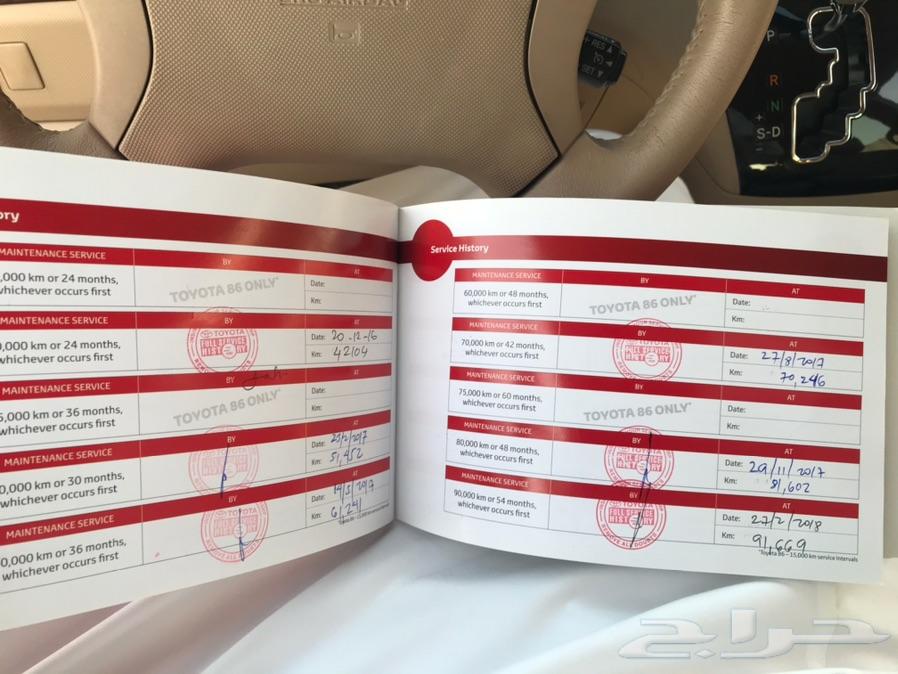 SRS AIRBAG
RES
SET
P
R
N
+
S-D
-
ory
MAINTENANCE SERVICE
BY
AT
,000 km or 24 months,
whichever occurs first
TOYOTA 86 ONLY*
Date:
Km:
MAINTENANCE SERVICE
BY
AT
0,000 km or 24 months,
whichever occurs first
TOYOTA
FULL SERVICE
HISTORY
Date: 20-12-16
Km: 42104
MAINTENANCE SERVICE
BY
AT
5,000 km or 36 months,
whichever occurs first
TOYOTA 86 ONLY*
Date:
Km:
MAINTENANCE SERVICE
BY
AT
0,000 km or 30 months,
whichever occurs first
FULL SERVICE
HISTORY
Date: 25/2/2017
Km: 51,452
MAINTENANCE SERVICE
BY
AT
0,000 km or 36 months,
whichever occurs first
TOYOTA
FULL SERVICE
HISTORY
Date: 14/5/2017
Km:
*Toyota 86 – 15,000 km service intervals
Service History
MAINTENANCE SERVICE
BY
AT
60,000 km or 48 months,
whichever occurs first
TOYOTA 86 ONLY*
Date:
Km:
MAINTENANCE SERVICE
BY
AT
70,000 km or 42 months,
whichever occurs first
TOYOTA
FULL SERVICE
HISTORY
Date: 27/8/2017
Km: 70,246
MAINTENANCE SERVICE
BY
AT
75,000 km or 60 months,
whichever occurs first
TOYOTA 86 ONLY*
Date:
Km:
MAINTENANCE SERVICE
BY
AT
80,000 km or 48 months,
whichever occurs first
TOYOTA
FULL SERVICE
HISTORY
Date: 29/11/2017
Km: 81,602
MAINTENANCE SERVICE
BY
AT
90,000 km or 54 months,
whichever occurs first
TOYOTA
FULL SERVICE
HISTORY
Date: 27/2/2018
Km: 91,669
*Toyota 86 – 15,000 km service intervals
حراج